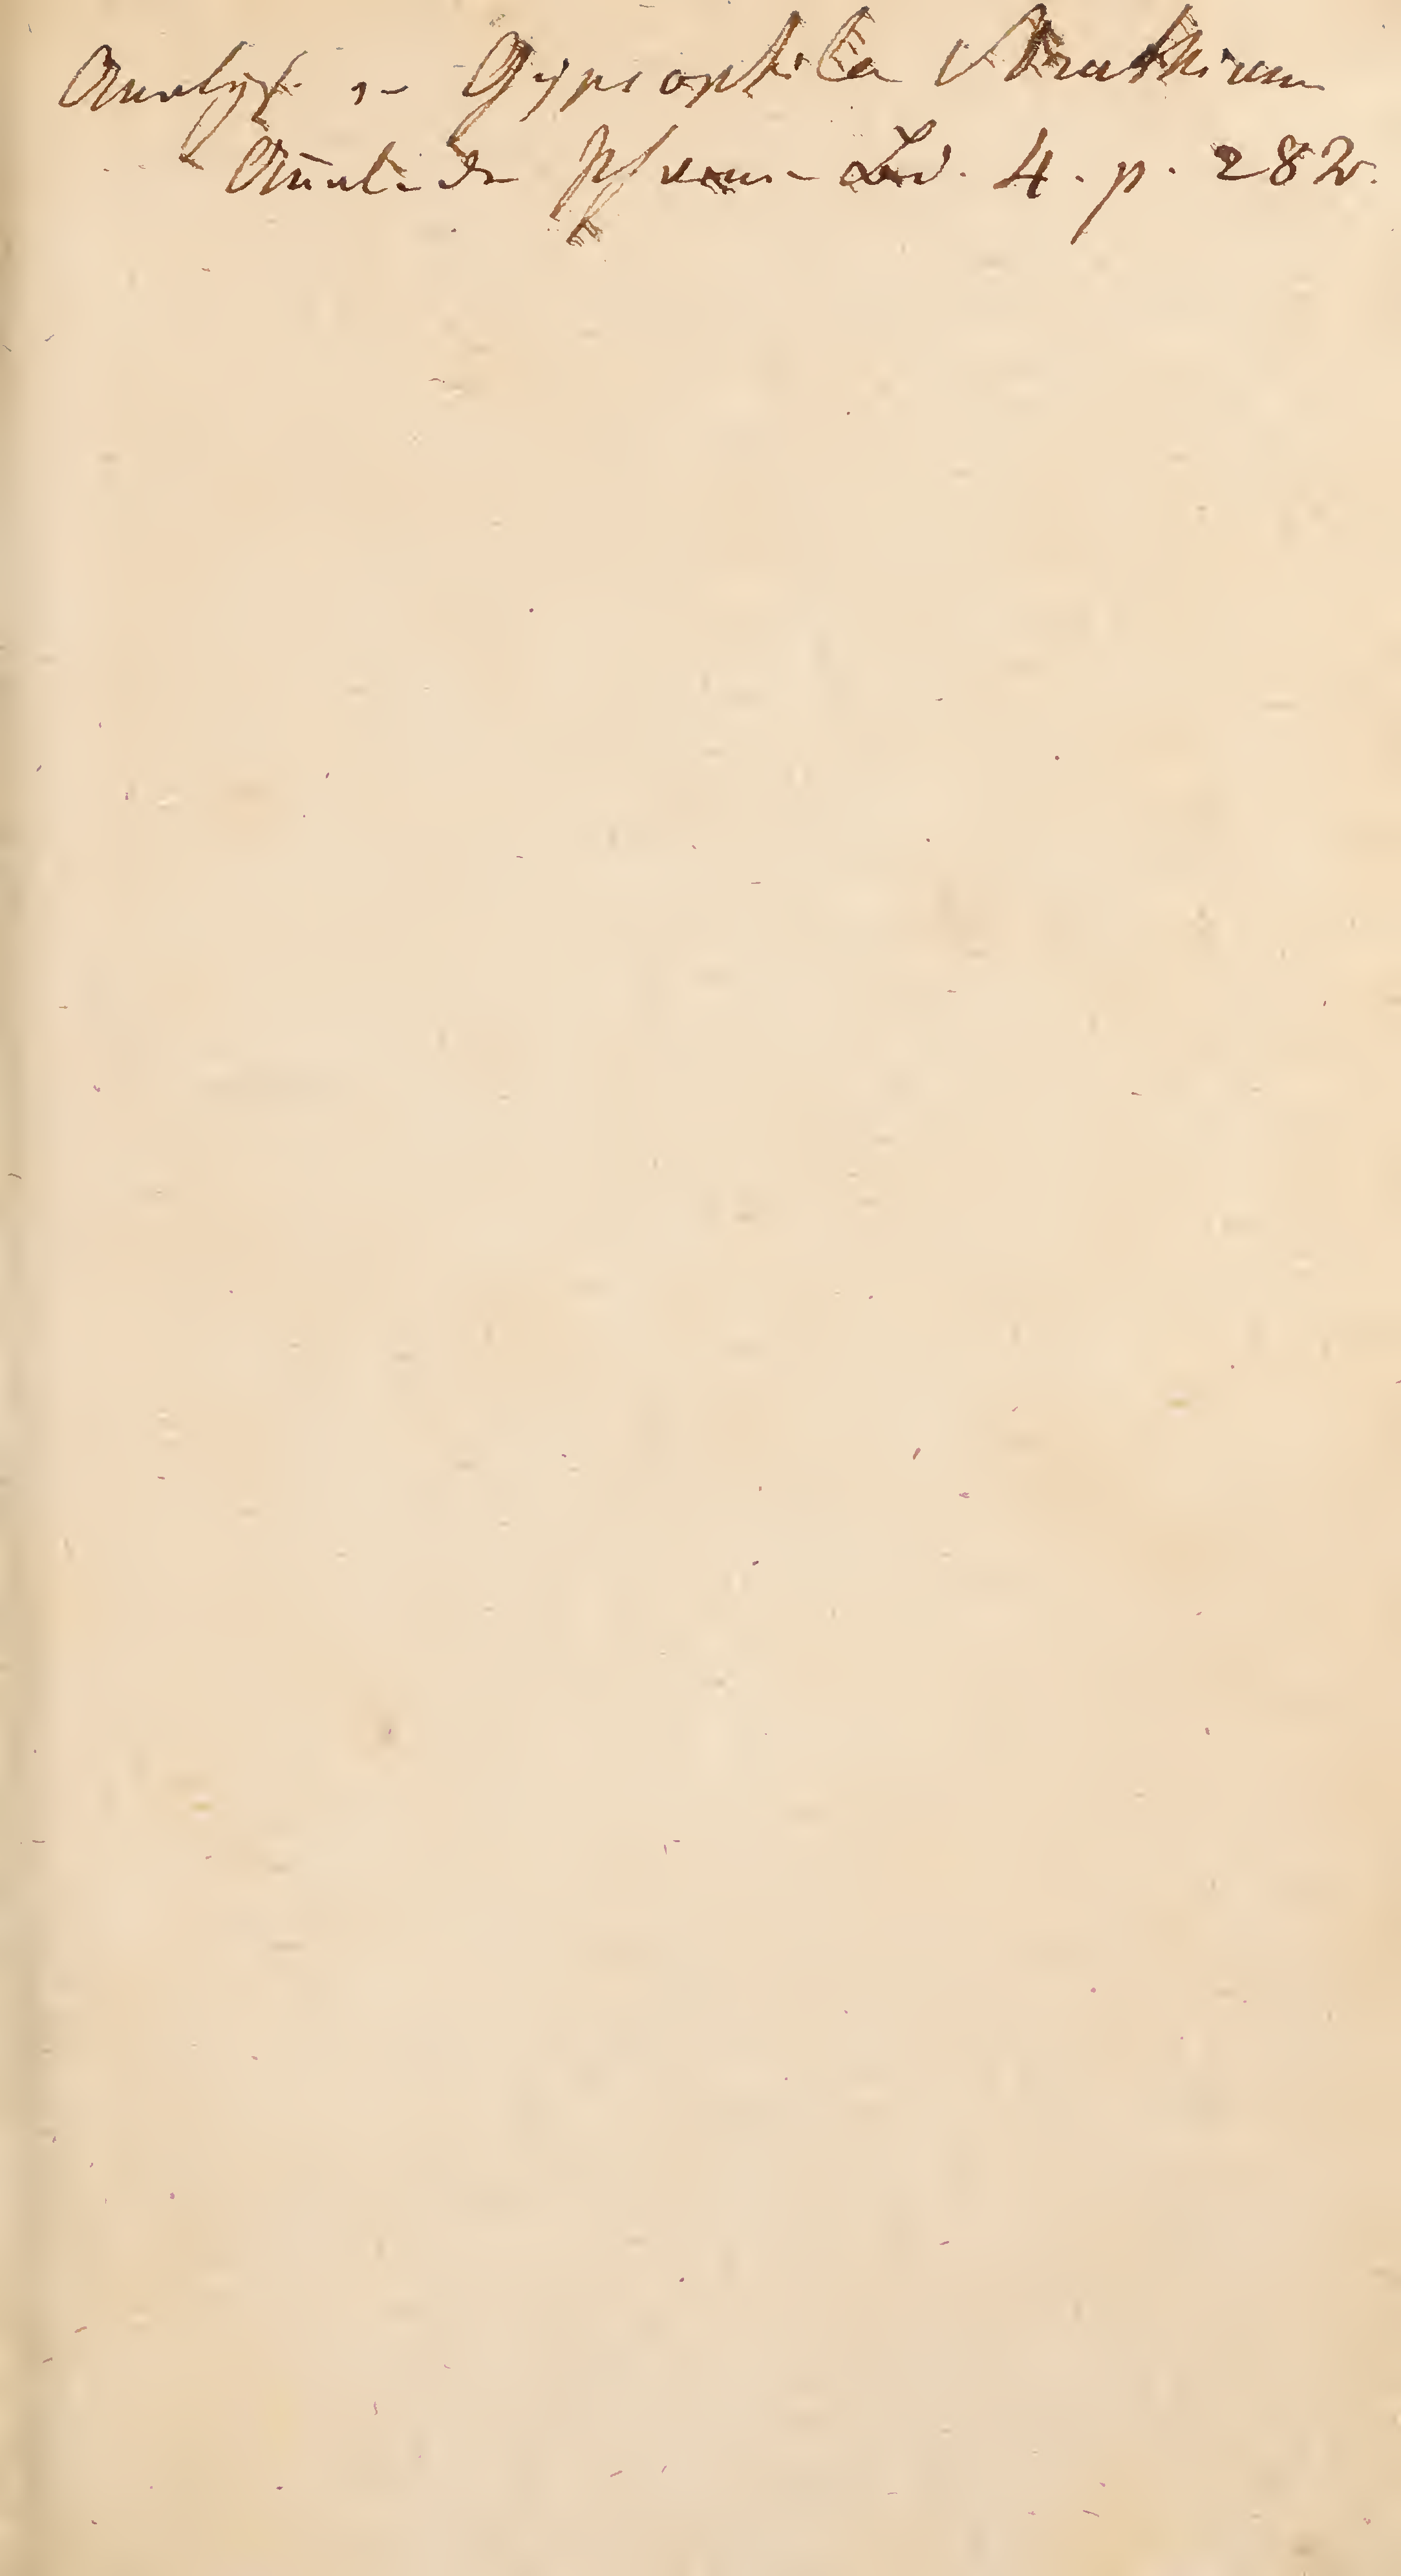 Analyse v. Gypsophila Struthium
Annal. d. Pharm. Bd. 4. p. 282.